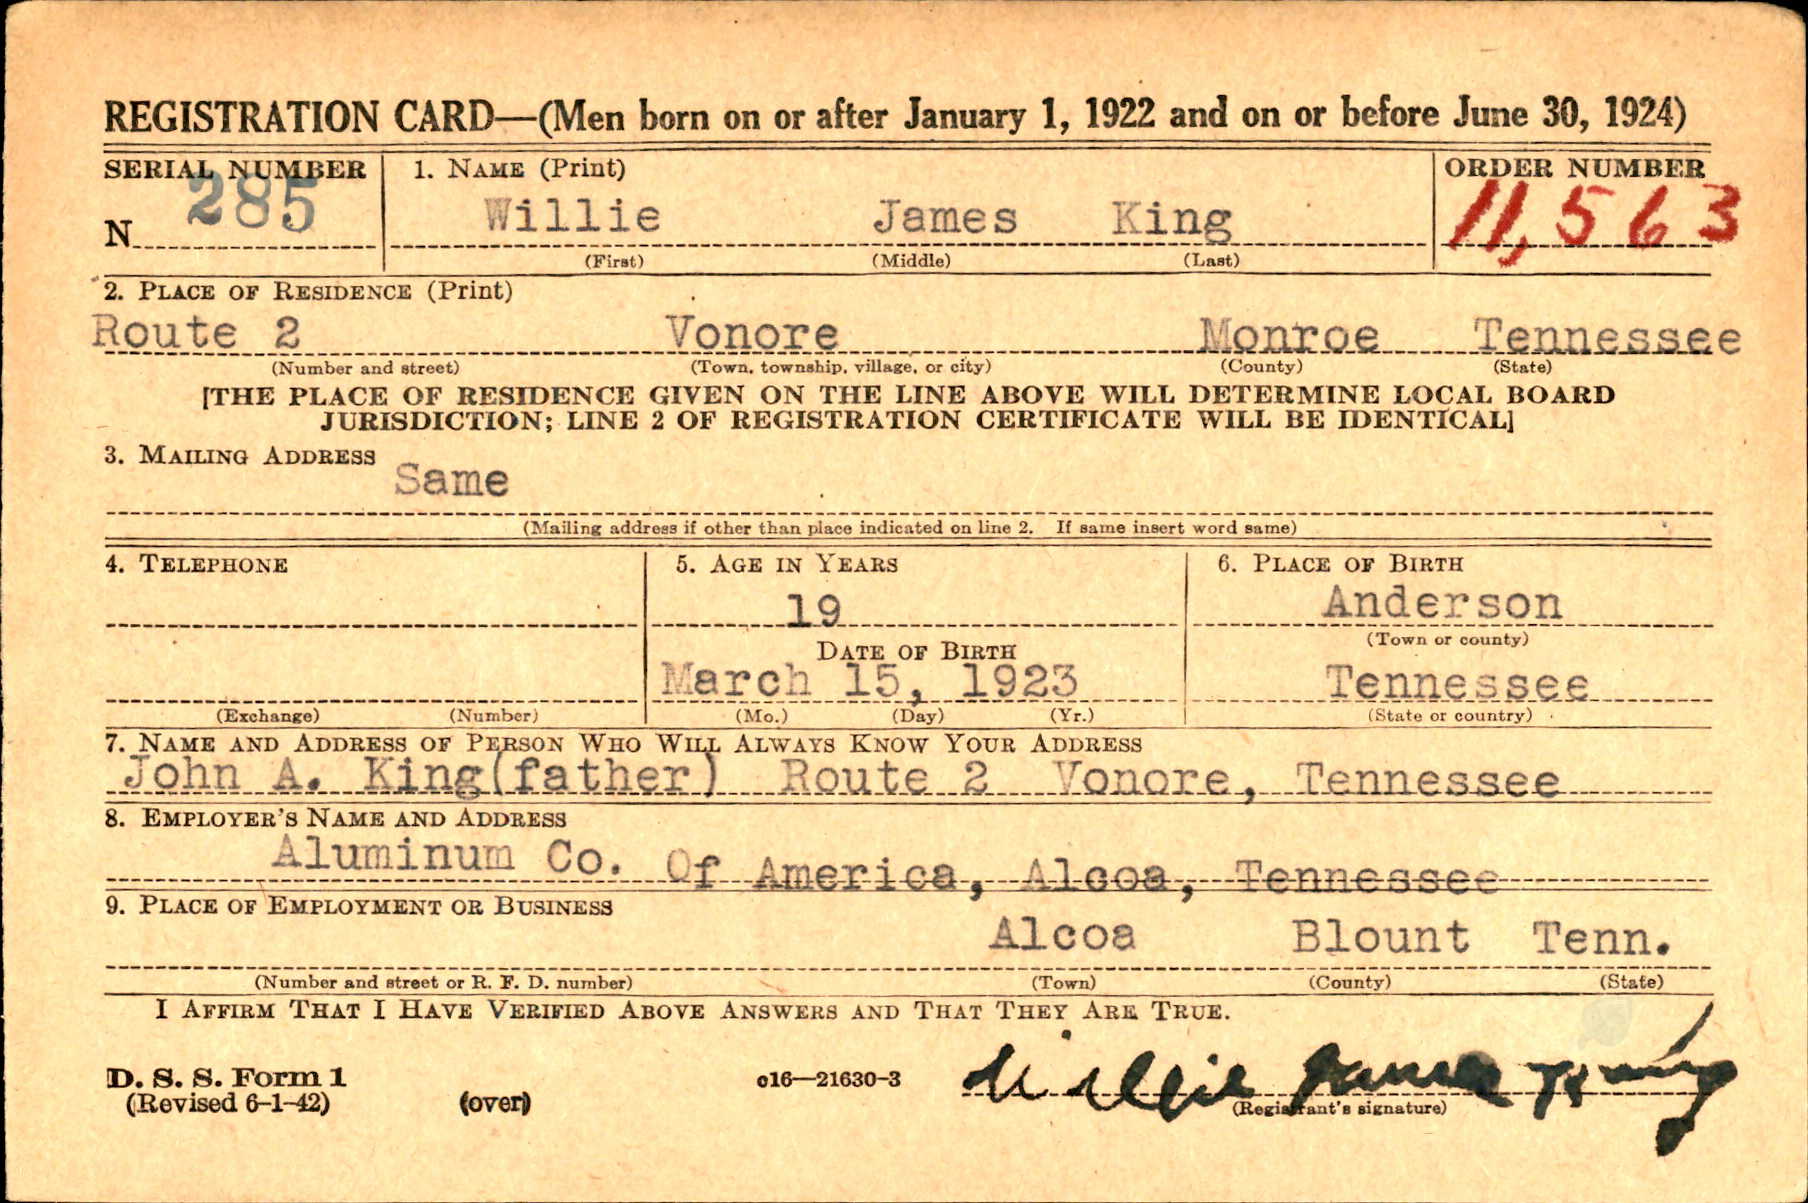 REGISTRATION CARD—(Men born on or after January 1, 1922 and on or before June 30, 1924)
SERIAL NUMBER 1. NAME (Print) ORDER NUMBER
N 285 Willie James King 11,563
(First) (Middle) (Last)
2. PLACE OF RESIDENCE (Print)
Route 2 Vonore Monroe Tennessee
(Number and street) (Town, township, village, or city) (County) (State)
[THE PLACE OF RESIDENCE GIVEN ON THE LINE ABOVE WILL DETERMINE LOCAL BOARD
JURISDICTION; LINE 2 OF REGISTRATION CERTIFICATE WILL BE IDENTICAL]
3. MAILING ADDRESS
Same
(Mailing address if other than place indicated on line 2. If same insert word same)
4. TELEPHONE 5. AGE IN YEARS 6. PLACE OF BIRTH
19 Anderson
DATE OF BIRTH (Town or county)
March 15, 1923 Tennessee
(Exchange) (Number) (Mo.) (Day) (Yr.) (State or country)
7. NAME AND ADDRESS OF PERSON WHO WILL ALWAYS KNOW YOUR ADDRESS
John A. King(father) Route 2 Vonore, Tennessee
8. EMPLOYER'S NAME AND ADDRESS
Aluminum Co. Of America, Alcoa, Tennessee
9. PLACE OF EMPLOYMENT OR BUSINESS
Alcoa Blount Tenn.
(Number and street or R. F. D. number) (Town) (County) (State)
I AFFIRM THAT I HAVE VERIFIED ABOVE ANSWERS AND THAT THEY ARE TRUE.
D. S. S. Form 1 c16—21630-3 Willie James King
(Revised 6-1-42) (over) (Registrant's signature)